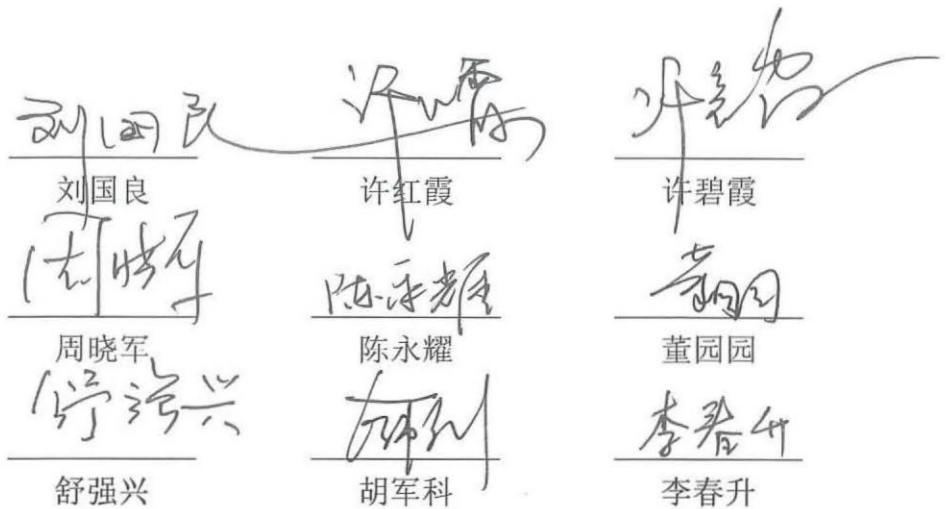 刘国良 许红霞 许碧霞
刘国良 许红霞 许碧霞
周晓军 陈永耀 董园园
周晓军 陈永耀 董园园
舒强兴 李春升
舒强兴 胡军科 李春升